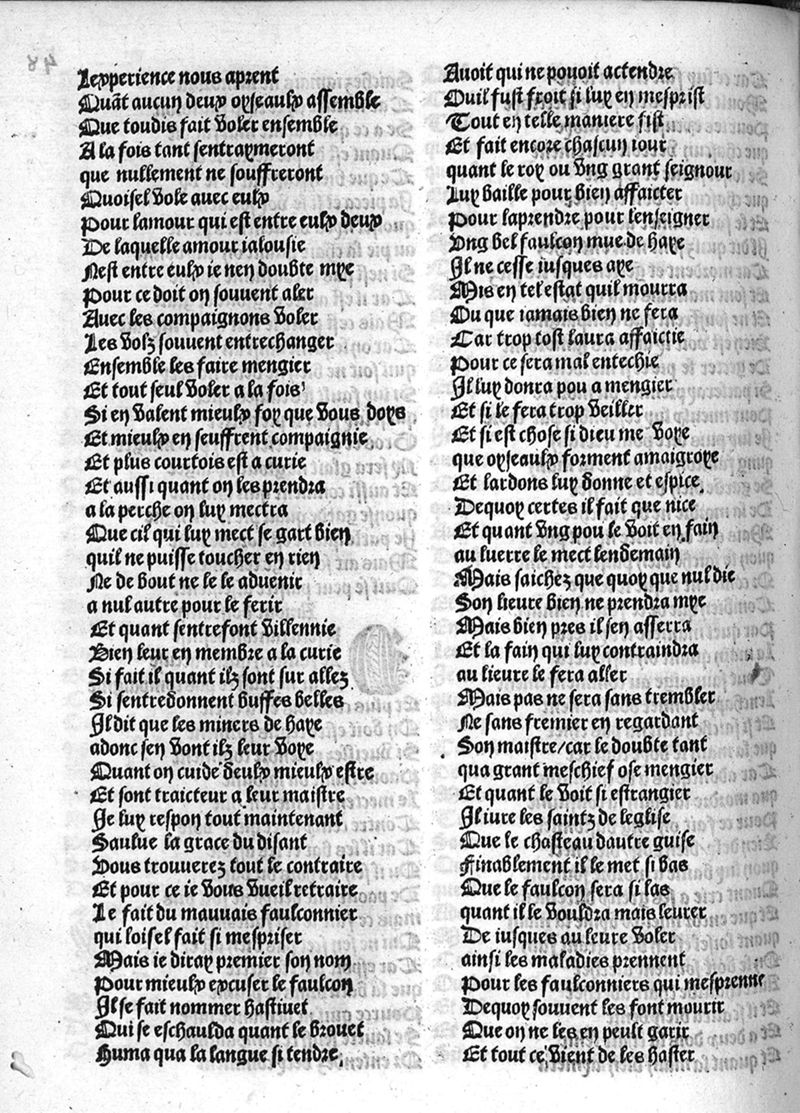 Lexperience nous aprent
Quāt aucun deux oyseaulx assemble
Que toudis fait voler ensemble
A la fois tant sentraymeront
que nullement ne souffreront
Quoisel vole avec eulx
Pour lamour qui est entre eulx deux
De laquelle amour ialousie
Nest entre eulx ie nen doubte mye
Pour ce doit on souvent aler
Avec les compaignons voler
Les volz souvent entrechanger
Ensemble les faire mengier
Et tout seul voler a la fois
Si en valent mieulx foy que vous doys
Et mieulx en seuffrent compaignie
Et plus courtois est a curie
Et aussi quant on les prendra
a la perche on luy mectra
Que cil qui luy mect se gart bien
quil ne puisse toucher en rien
Ne de bout ne le le advenir
a nul autre pour le ferir
Et quant sentrefont villennie
Bien leur en membre a la curie
Si fait il quant ilz sont sur allez
Si sentredonnent buffes belles
Il dit que les miners de haye
adonc sen vont ilz leur voye
Quant on cuide deulx mieulx estre
Et sont traicteur a leur maistre
Je luy respon tout maintenant
Saulue la grace du disant
Vous trouverez tout le contraire
Et pour ce ie vous vueil retraire
Le fait du mauvais faulconnier
qui loisel fait si mespriser
Mais ie diray premier son nom
Pour mieulx excuser le faulcon
Il se fait nommer hastivet
Qui se eschaulda quant le brouet
Huma qua la langue si tendre
Avoit qui ne povoit actendre
Quil fust froit si luy en mesprist
Tout en telle maniere fist
Et fait encore chascun iour
quant le roy ou vng grant seignour
Luy baille pour bien affaicter
Pour laprendre pour lenseigner
Vng bel faulcon mue de haye
Il ne cesse iusques aye
Mis en tel estat quil mourra
Ou que iamais bien ne fera
Car trop tost laura affaictie
Pour ce sera mal entechie
Il luy donra pou a mengier
Et si le fera trop veiller
Et si est chose si dieu me voye
que oyseaulx forment amaigroye
Et lardons luy donne et espice
Dequoy certes il fait que nice
Et quant vng pou le voit en fain
au luerre le mect lendemain
Mais saichez que quoy que nul die
Son lieure bien ne prendra mye
Mais bien pres il sen asserra
Et la fain qui luy contraindra
au lieure le fera aller
Mais pas ne sera sans trembler
Ne sans fremier en regardant
Son maistre/car le doubte tant
qua grant meschief ose mengier
Et quant le voit si estrangier
Il iure les saintz de leglise
Que le chasteau dautre guise
Finablement il le met si bas
Que le faulcon sera si las
quant il le vouldra mais leurer
De iusques au leure voler
ainsi les maladies prennent
Pour les faulconniers qui mesprenne
Dequoy souvent les font mourir
Que on ne les en peult garir
Et tout ce vient de les haster